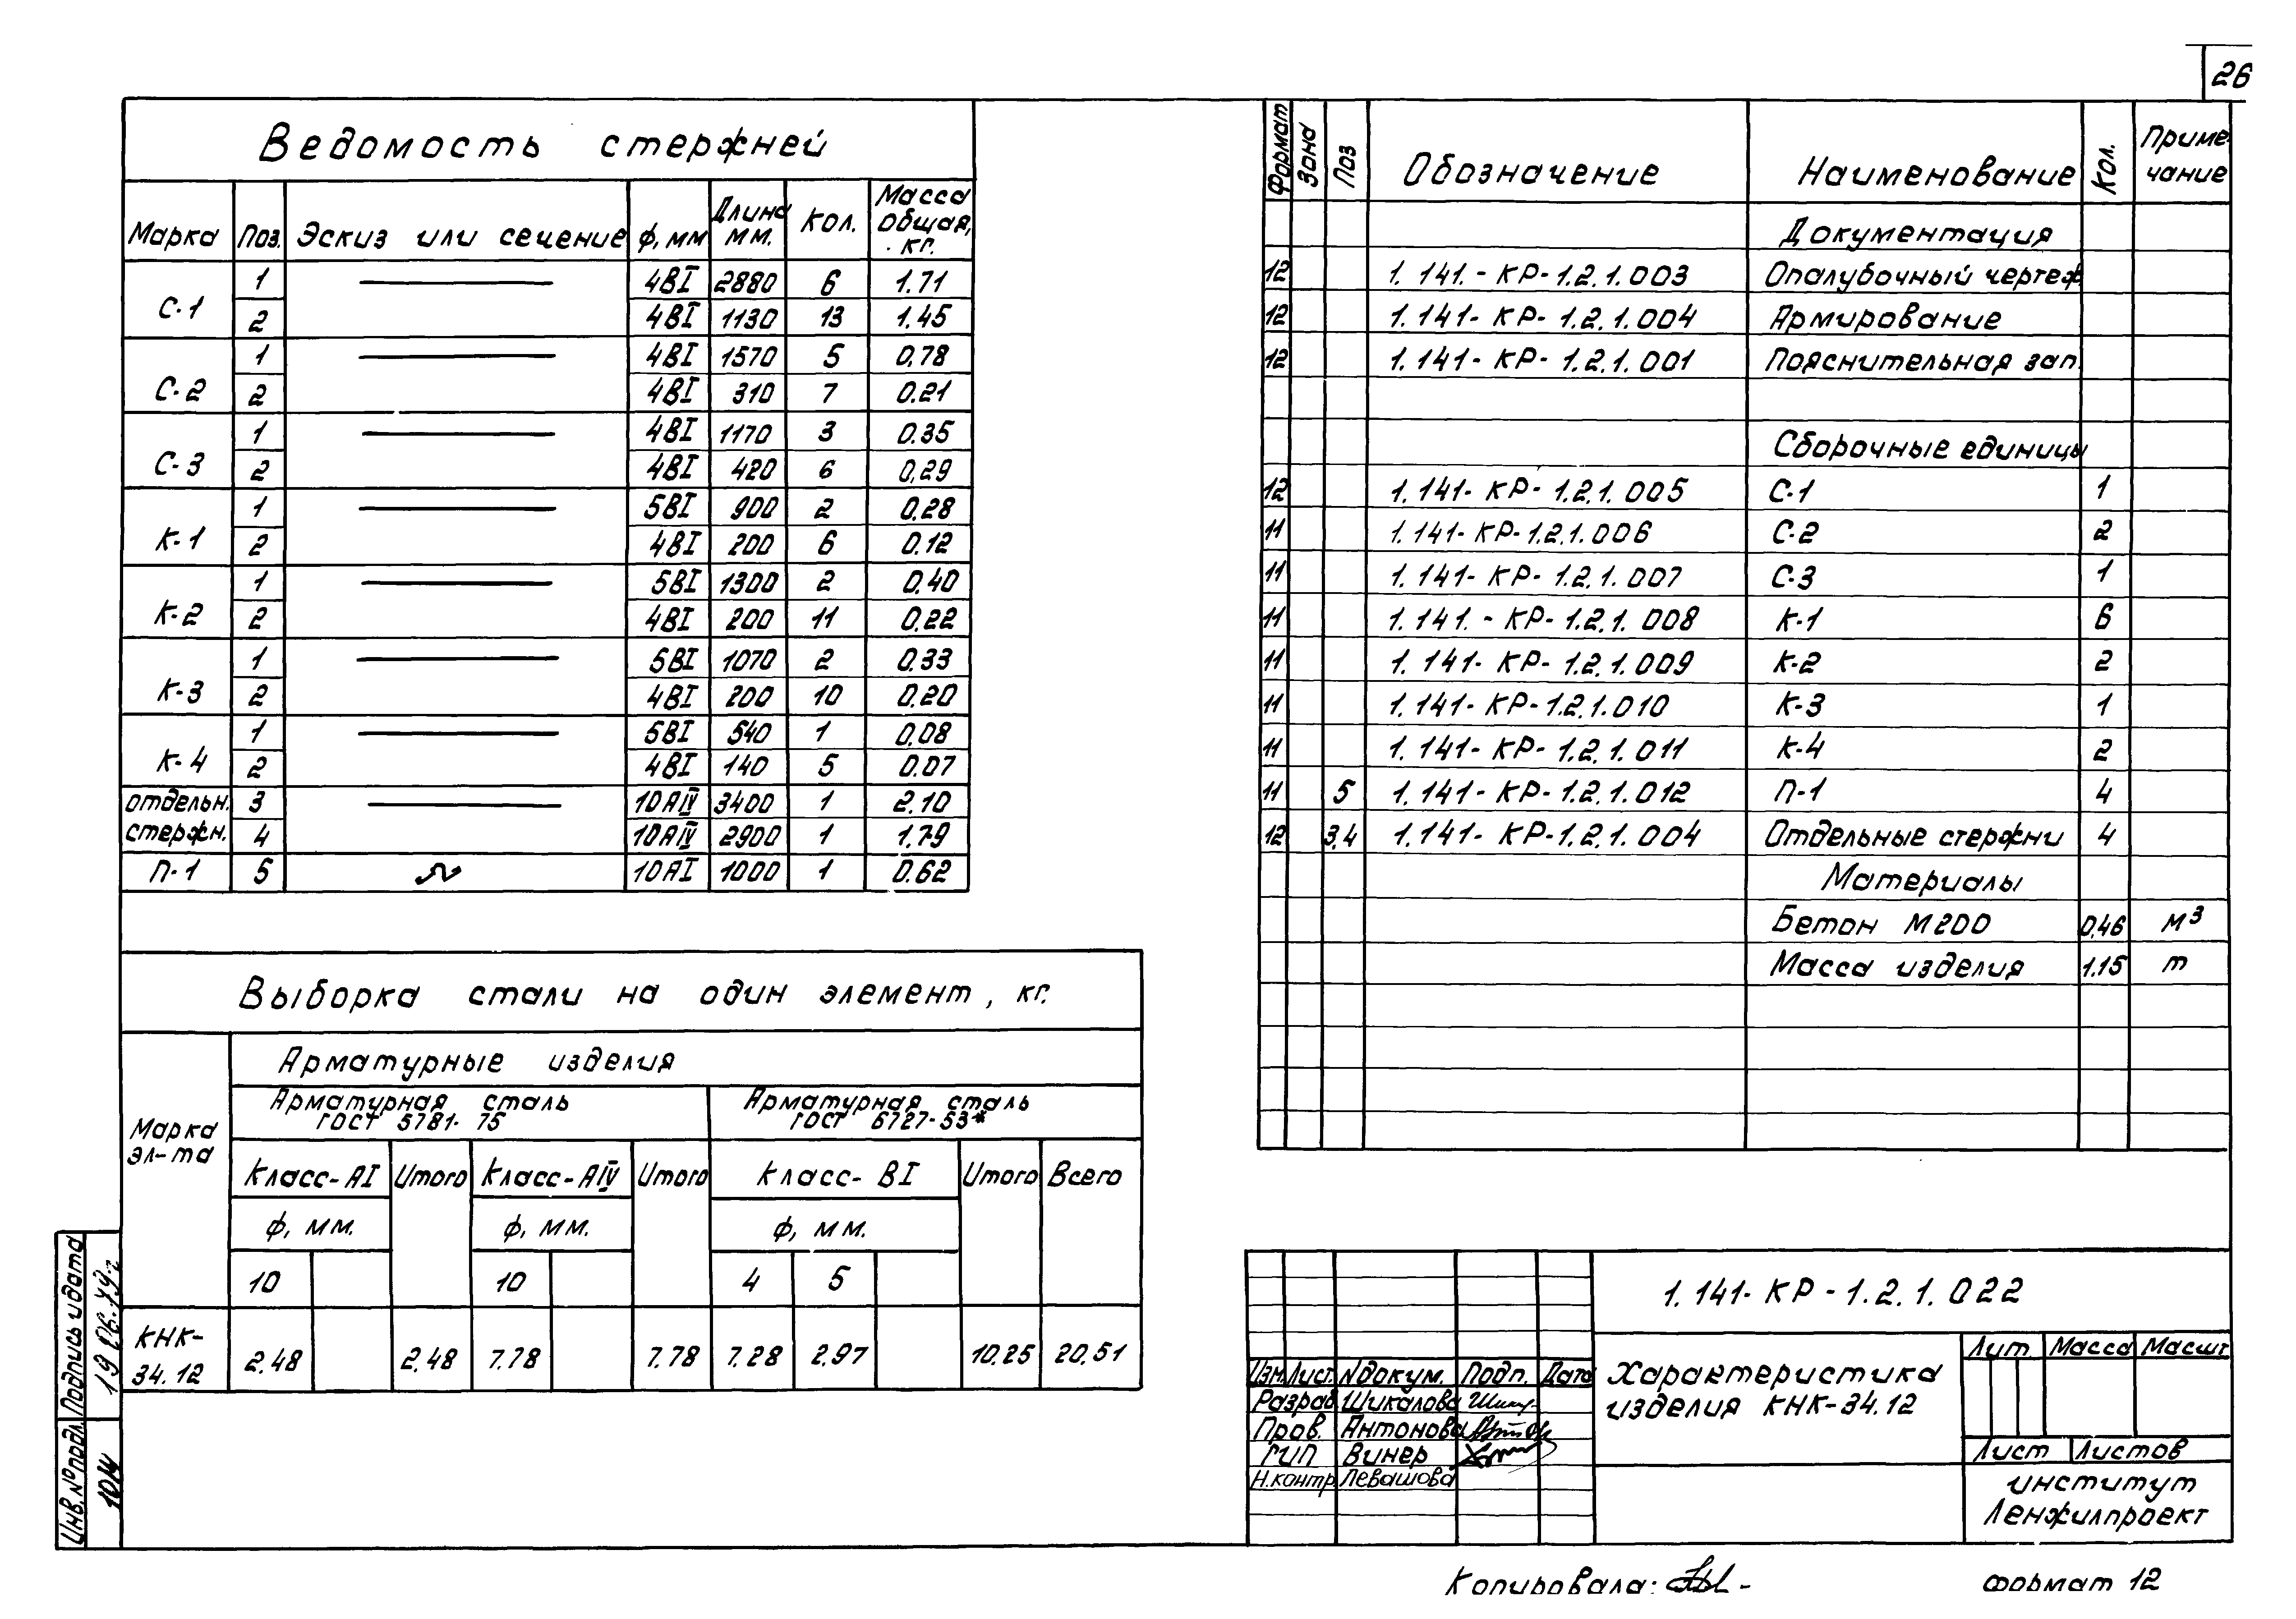 26
Ведомость стержней
Марка Поз. Эскиз или сечение ф, мм Длина мм. Кол. Масса общая, кг.
С-1 1 4ВI 2880 6 1.71
2 4ВI 1130 13 1.45
С-2 1 4ВI 1570 5 0,78
2 4ВI 310 7 0.21
С-3 1 4ВI 1170 3 0.35
2 4ВI 420 6 0,29
К-1 1 5ВI 900 2 0.28
2 4ВI 200 6 0.12
К-2 1 5ВI 1300 2 0.40
2 4ВI 200 11 0.22
К-3 1 5ВI 1070 2 0.33
2 4ВI 200 10 0.20
К-4 1 5ВI 540 1 0,08
2 4ВI 140 5 0.07
отдельн. 3 10АIV 3400 1 2.10
стержн. 4 10АIV 2900 1 1.79
П-1 5 10АI 1000 1 0.62
Выборка стали на один элемент, кг.
Марка эл-та
Арматурные изделия
Арматурная сталь ГОСТ 5781-75
Арматурная сталь ГОСТ 6727-53*
Класс-АI Итого Класс-АIV Итого Класс-ВI Итого Всего
ф, мм. ф, мм. ф, мм.
10 10 4 5
КНК-34.12 2.48 2.48 7.78 7.78 7.28 2.97 10.25 20,51
Формат Зона Поз Обозначение Наименование Кол. Примечание
Документация
12 1.141.-КР-1.2.1.003 Опалубочный чертеж
12 1.141-КР-1.2.1.004 Армирование
12 1.141-КР-1.2.1.001 Пояснительная зап.
Сборочные единицы
12 1.141-КР-1.2.1.005 С-1 1
11 1.141-КР-1.2.1.006 С-2 2
11 1.141-КР-1.2.1.007 С-3 1
11 1.141.-КР-1.2.1.008 К-1 6
11 1.141-КР-1.2.1.009 К-2 2
11 1.141-КР-1.2.1.010 К-3 1
11 1.141-КР-1.2.1.011 К-4 2
11 5 1.141-КР-1.2.1.012 П-1 4
12 3,4 1.141-КР-1.2.1.004 Отдельные стержни 4
Материалы
Бетон М200 0,46 м³
Масса изделия 1.15 т
1.141-КР-1.2.1.022
Изм. Лист. Nдокум. Подп. Дата
Разраб. Шикалова
Пров. Антонова
ГИП Винер
Н.контр. Левашова
Характеристика
изделия КНК-34.12
Лит Масса Масшт
Лист Листов
институт
Ленжилпроект
Инв. №подл. Подпись и дата
Копировала:
Формат 12